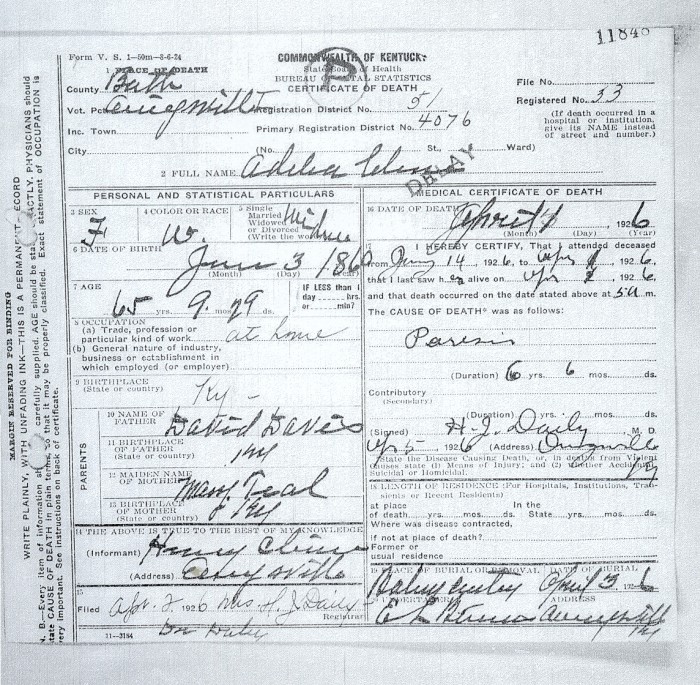 11848
Form V. S. 1-50m-8-6-24
COMMONWEALTH OF KENTUCKY
State Board of Health
BUREAU OF VITAL STATISTICS
CERTIFICATE OF DEATH
1 PLACE OF DEATH
County Bath
Vot. Pct.
Inc. Town
City
Registration District No. 51
Primary Registration District No. 4076
(No. St., Ward)
File No.
Registered No. 33
(If death occurred in a hospital or institution, give its NAME instead of street and number.)
2 FULL NAME
DELAY
PERSONAL AND STATISTICAL PARTICULARS
3 SEX F
4 COLOR OR RACE W.
5 Single Married Widowed or Divorced (Write the word)
6 DATE OF BIRTH June 3 1860
(Month) (Day) (Year)
7 AGE 65 yrs. 9 mos. 29 ds.
IF LESS than 1 day hrs. or min.?
8 OCCUPATION
(a) Trade, profession or particular kind of work at home
(b) General nature of industry, business or establishment in which employed (or employer)
9 BIRTHPLACE (State or country) Ky-
PARENTS
10 NAME OF FATHER David Davis
11 BIRTHPLACE OF FATHER (State or country) Ky
12 MAIDEN NAME OF MOTHER Mary Teal
13 BIRTHPLACE OF MOTHER (State or country) Ky
14 THE ABOVE IS TRUE TO THE BEST OF MY KNOWLEDGE
(Informant) Henry
(Address)
15
Filed Apr. 2, 1926 Mrs. H. J. Daily
Registrar
11-3184
MEDICAL CERTIFICATE OF DEATH
16 DATE OF DEATH April 1, 1926
(Month) (Day) (Year)
17 I HEREBY CERTIFY, That I attended deceased
from 14 1926, to Apr 1, 1926,
that I last saw her alive on Apr 1, 1926,
and that death occurred on the date stated above at m.
The CAUSE OF DEATH* was as follows:
Paresis
(Duration) 6 yrs. 6 mos. ds.
Contributory
(Secondary)
(Duration) yrs. mos. ds.
(Signed) H. J. Daily M. D.
Apr 5 1926 (Address) Owingsville Ky
*State the Disease Causing Death, or, in deaths from Violent Causes state (1) Means of Injury; and (2) whether Accidental, Suicidal or Homicidal.
18 LENGTH OF RESIDENCE (For Hospitals, Institutions, Transients or Recent Residents)
At place of death yrs. mos. ds. In the State yrs. mos. ds.
Where was disease contracted,
if not at place of death?
Former or usual residence
19 PLACE OF BURIAL OR REMOVAL DATE OF BURIAL
April 3, 1926
20 UNDERTAKER ADDRESS
MARGIN RESERVED FOR BINDING
WRITE PLAINLY, WITH UNFADING INK—THIS IS A PERMANENT RECORD
N. B.—Every item of information should be carefully supplied. AGE should be stated EXACTLY. PHYSICIANS should
state CAUSE OF DEATH in plain terms, so that it may be properly classified. Exact statement of OCCUPATION is
very important. See instructions on back of certificate.